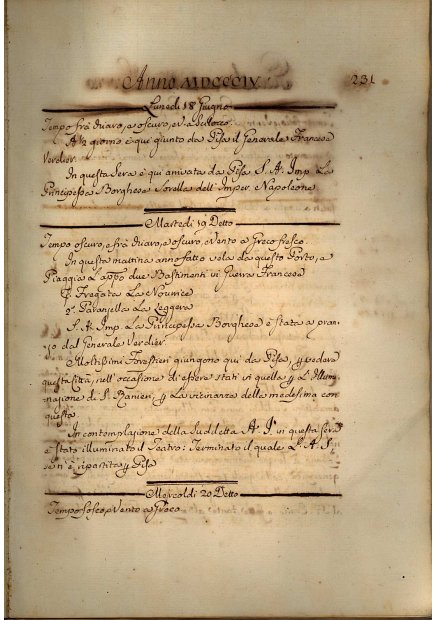 Anno MDCCCIV
231
Lunedì 18 Giugno
Tempo frà chiaro, e oscuro, e
A ½ giorno è qui giunto da Pisa il Generale Francese
Verdier.
In questa Sera è qui arrivata da Pisa S. A. Imp. La
Principessa Borghese Sorella dell' Imper. Napoleone
Martedì 19 Detto
Tempo oscuro, e frà chiaro, e oscuro, e Vento a Greco fresco.
In questa mattina anno fatto vela da questo Porto, a
Piaggia Lappo due Bastimenti di Guerra Francese
Fregata La
2ª. La Leggera
S. A. Imp. La Principessa Borghese è stata a pran-
zo dal Generale Verdier.
Moltissimi Forestieri giungono qui da Pisa, p vedere
questa Città, nell' occasione di essere stati in quella p L'Illumi-
nazione di Sn. Ranieri, p La vicinanza della medesima con
questa
In contemplazione della Suddetta A. I. in questa Sera
è Stato illuminato il Teatro: Terminato il quale L' A. S.
se n' è ripartita p Pisa
Mercoldì 20 Detto
Tempo fosco, e Vento a Greco